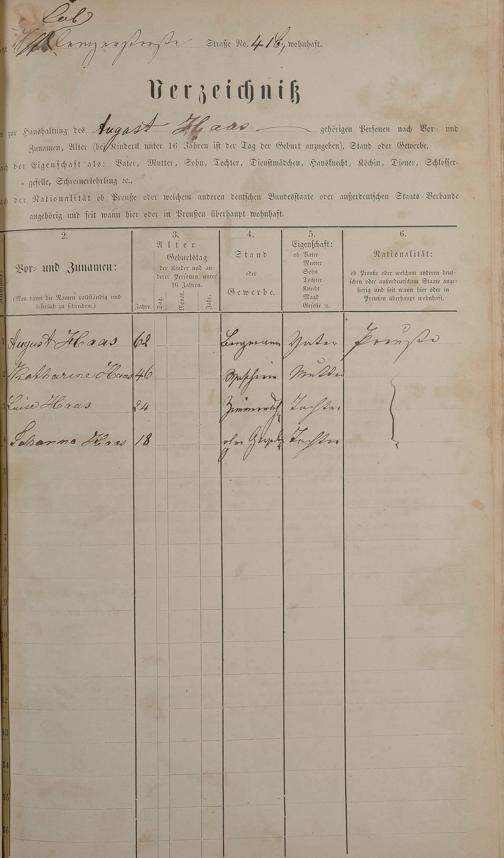 Straße No. 41b, wohnhaft.
Verzeichniß
zur Haushaltung des August Haas gehörigen Personen nach Vor- und
Zunamen, Alter (bei Kindern unter 16 Jahren ist der Tag der Geburt anzugeben), Stand oder Gewerbe,
der Eigenschaft als: Vater, Mutter, Sohn, Tochter, Dienstmädchen, Hausknecht, Köchin, Diener, Schlosser-
geselle, Schreinerlehrling ꝛc.,
der Nationalität ob Preuße oder welchem anderen deutschen Bundesstaate oder außerdeutschen Staats-Verbande
angehörig und seit wann hier oder in Preußen überhaupt wohnhaft.
2. 3. 4. 5. 6.
Vor- und Zunamen:
(Man bittet die Namen vollständig und leserlich zu schreiben.)
Alter
Geburtstag
der Kinder und anderer Personen unter 16 Jahren.
Jahre. Tag. Monat. Jahr.
Stand
oder
Gewerbe.
Eigenschaft:
ob Vater
Mutter
Sohn
Tochter
Knecht
Magd
Geselle ꝛc.
Nationalität:
ob Preuße oder welchem anderen deutschen oder außerdeutschen Staate angehörig und seit wann hier oder in Preußen überhaupt wohnhaft.
August Haas 62 Vater Preuße
Katharine Haas 46 Mutter
Luise Haas 24 Tochter
Johanna Haas 18 Tochter